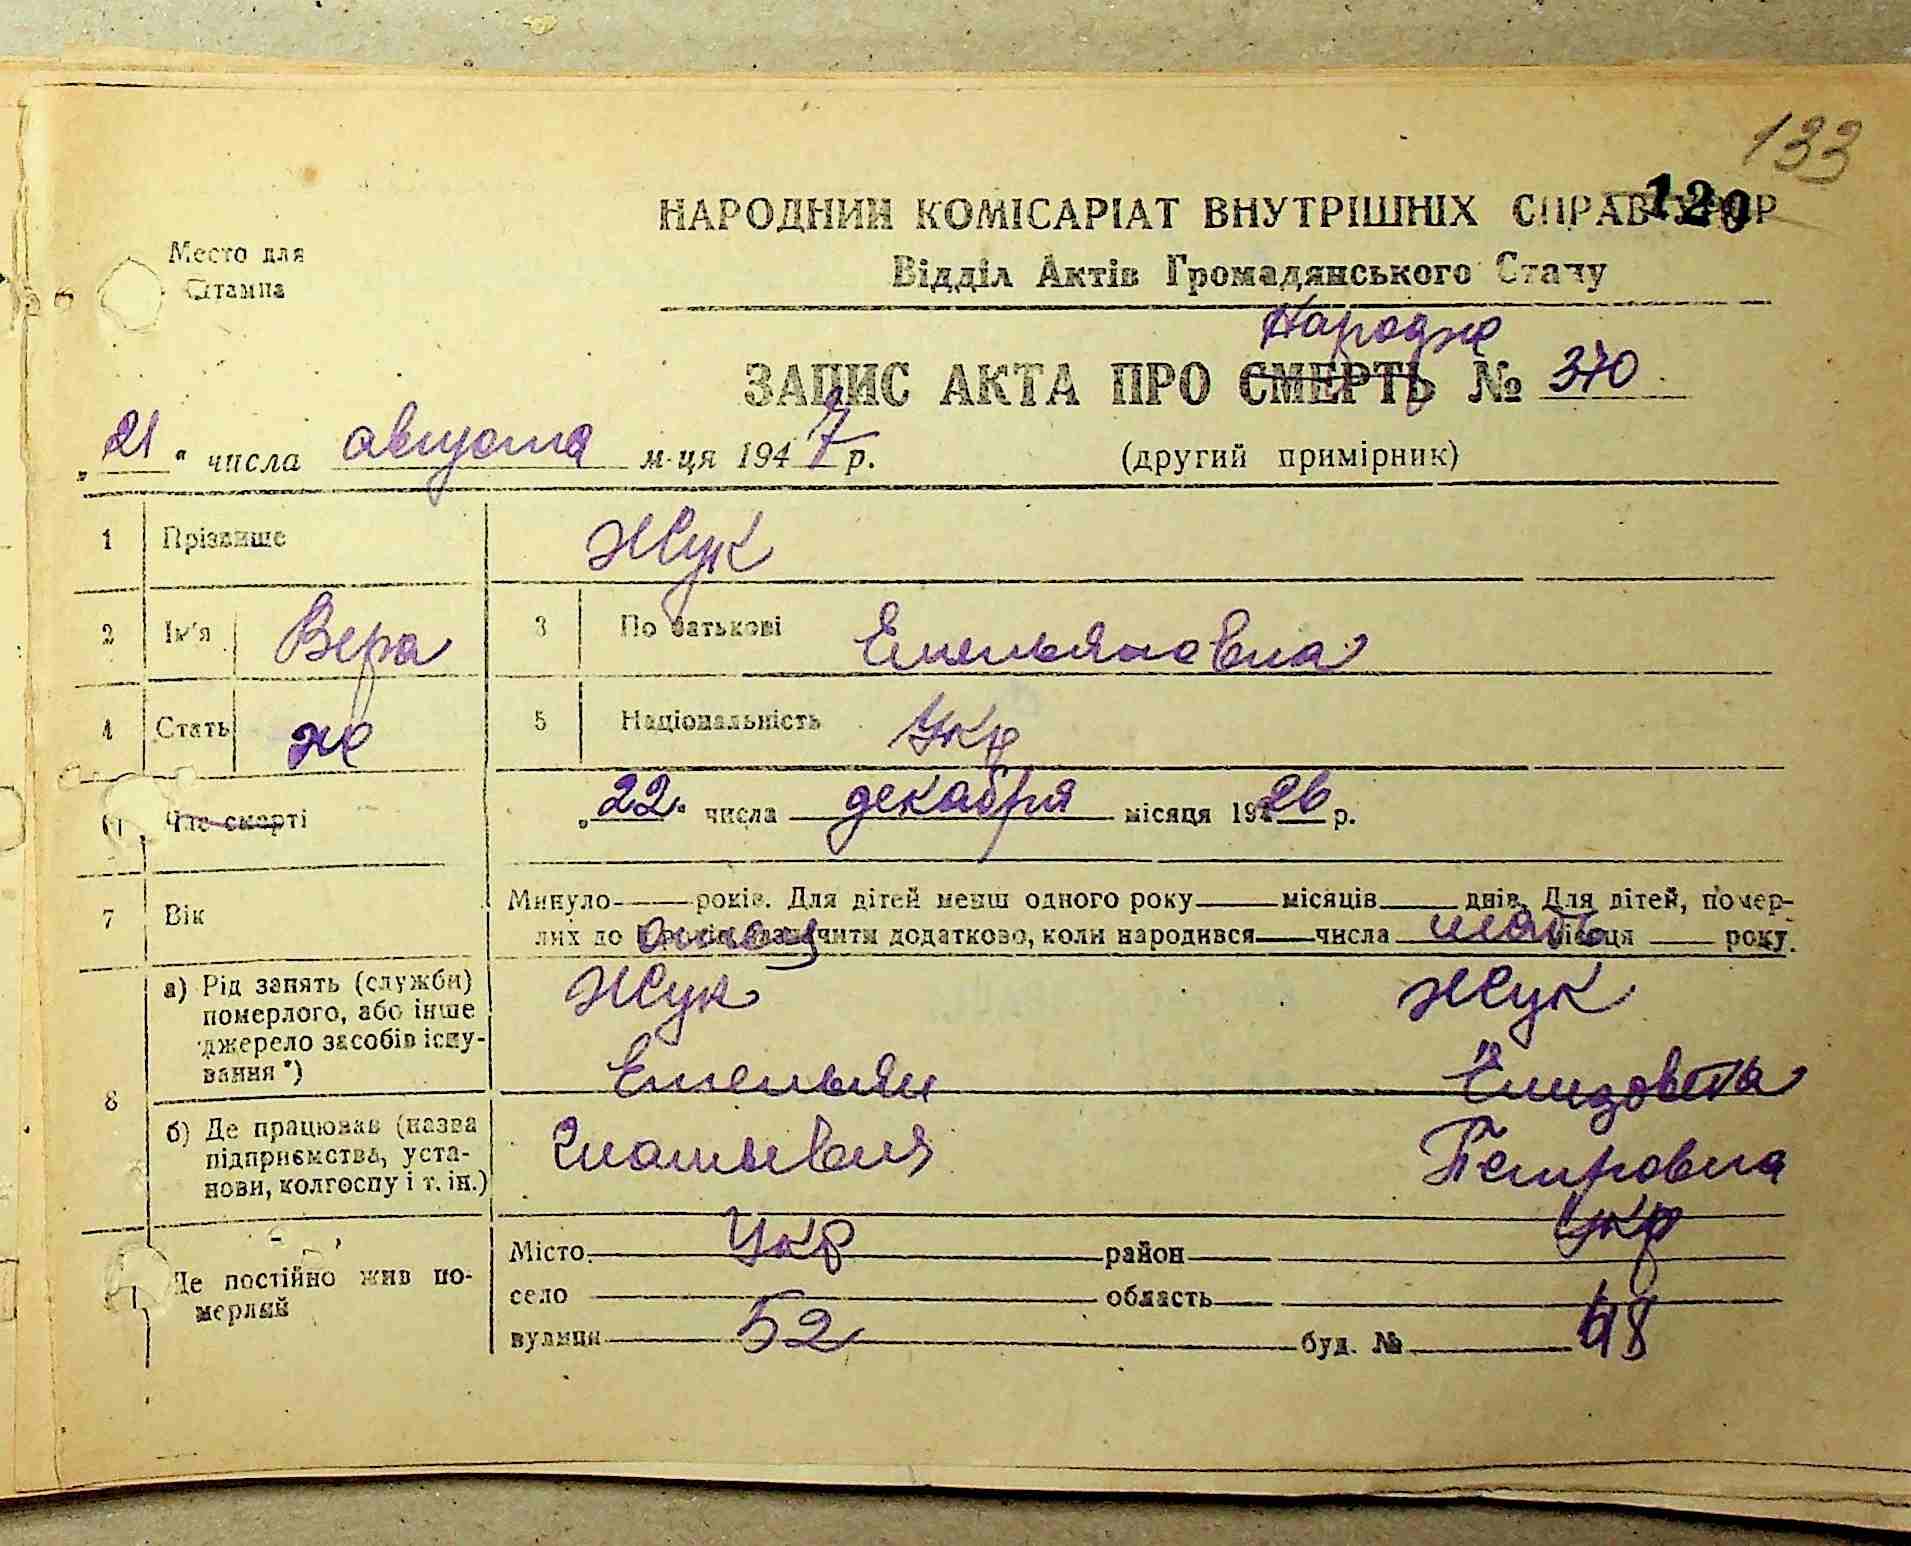 133
120
НАРОДНИЙ КОМІСАРІАТ ВНУТРІШНІХ СПРАВ УРСР
Место для
Штампа
Відділ Актів Громадянського Стану
Народже
ЗАПИС АКТА ПРО СМЕРТЬ № 370
„21“ числа августа м-ця 1947 р. (другий примірник)
1 Прізвище Жук
2 Ім'я Вера 3 По батькові Емельяновна
4 Стать ж 5 Національність Укр
6 Час смерті „22“ числа декабря місяця 1926 р.
7 Вік Минуло — років. Для дітей менш одного року — місяців — днів. Для дітей, помер-
лих до 1 років зазначити додатково, коли народився — числа — місяця — року.
отец мать
8 а) Рід занять (служби) померлого, або інше джерело засобів існування *) Жук Жук
Емельян Елизовета
б) Де працював (назва підприємства, установи, колгоспу і т. ін.) Игнатьевич Петровна
Де постійно жив померлий Місто Укр район Укр
село область
вулиця 52 буд. № 48